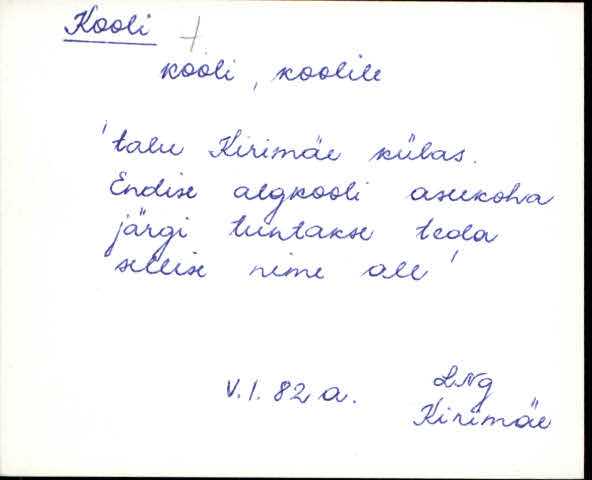 Kooli +
kooli, koolile
'talu Kirimäe külas.
Endise algkooli asukoha
järgi tuntakse teda
sellise nime all'
V.I. 82 a. LNg
Kirimäe